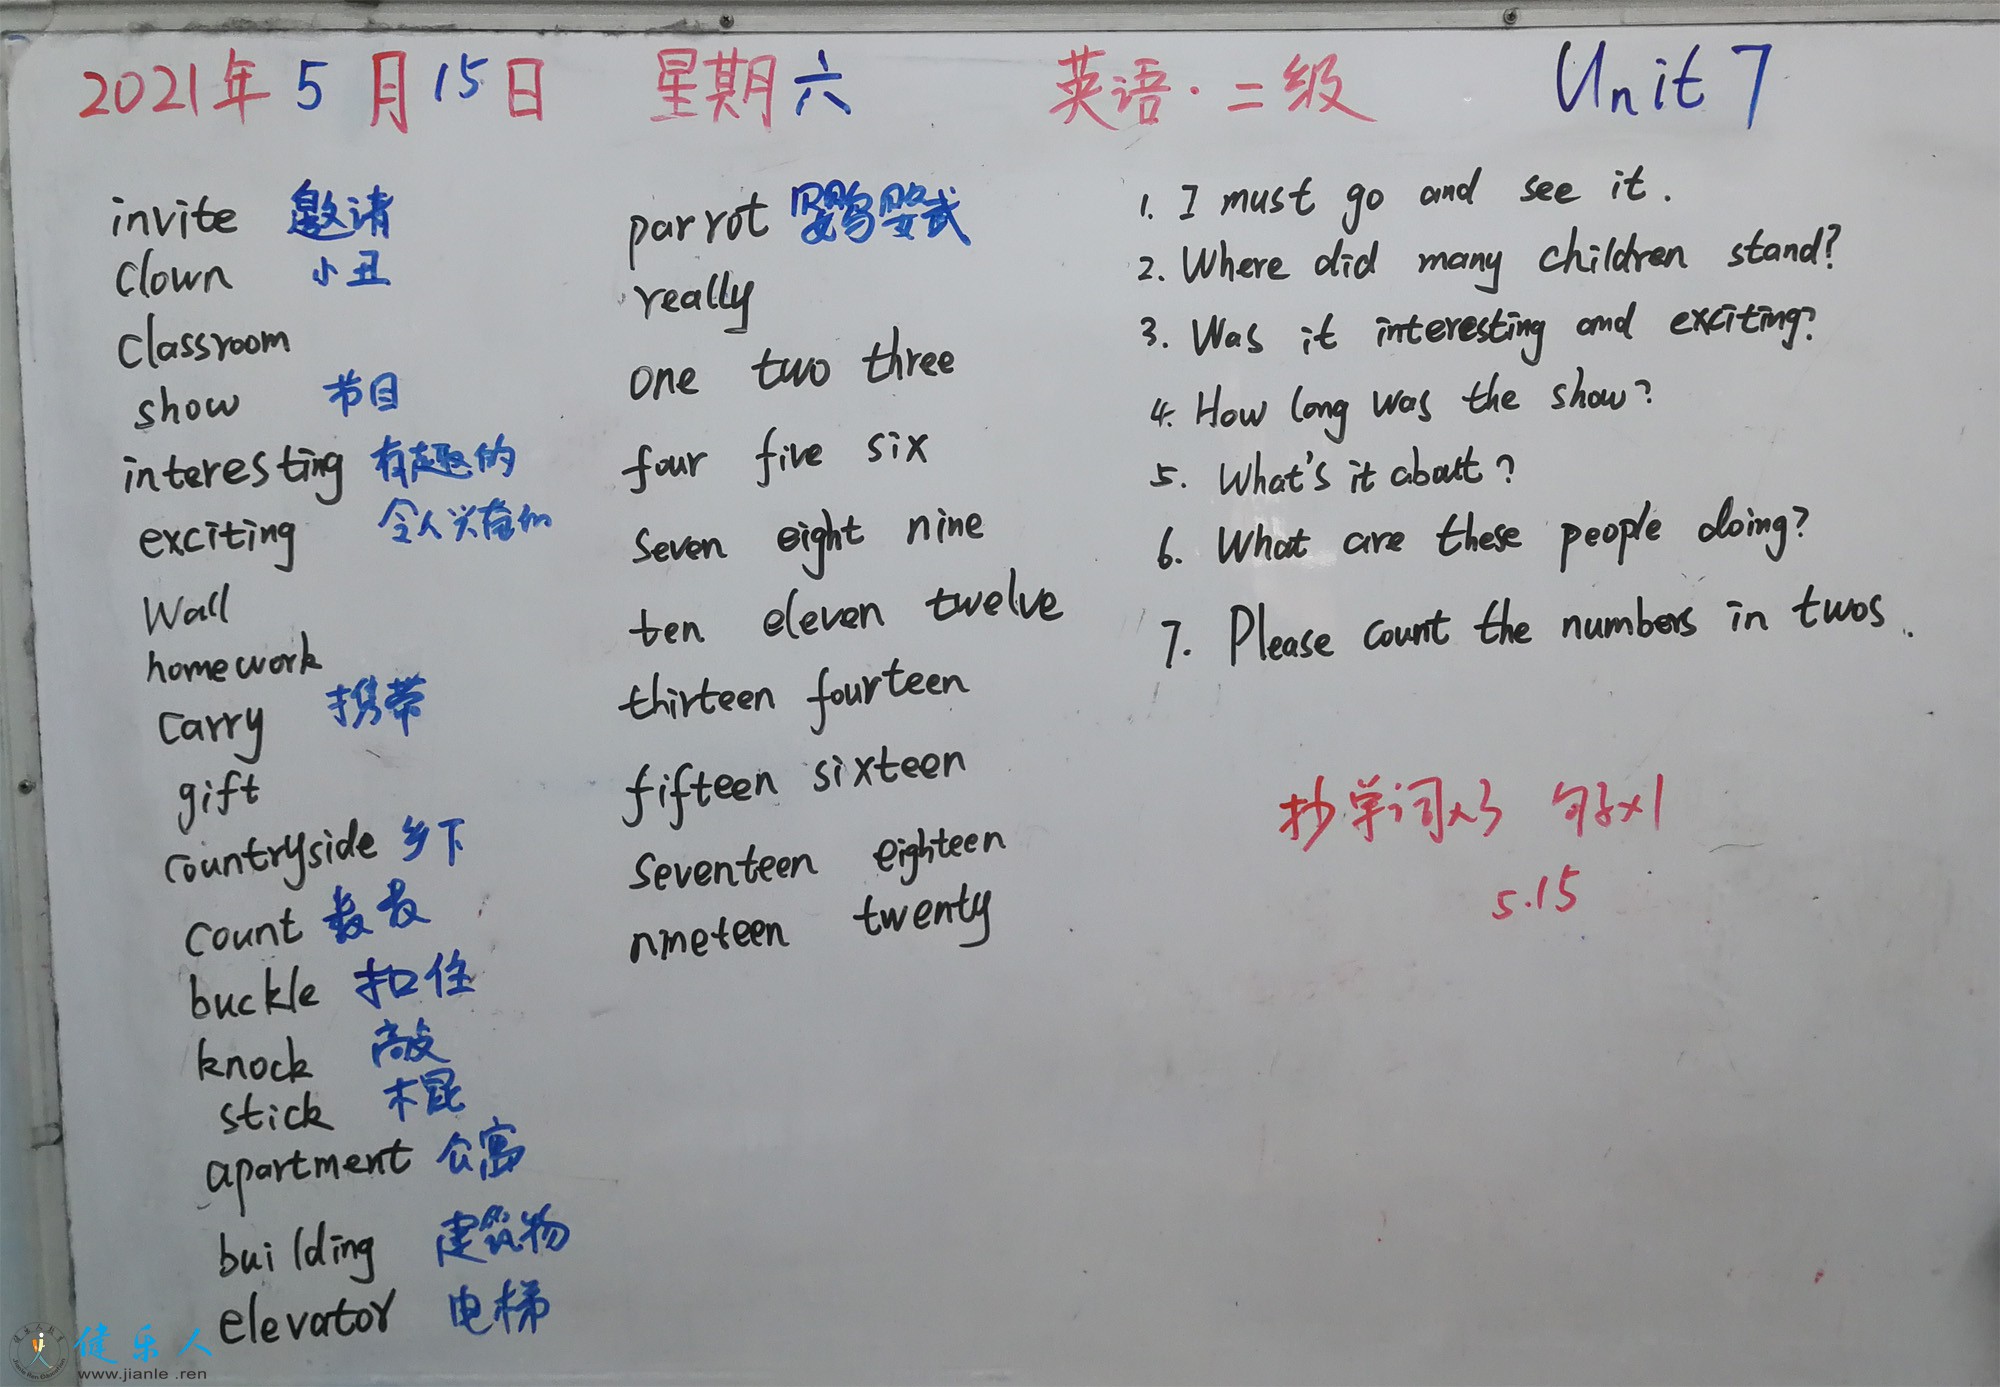 2021年5月15日 星期六 英语·二级 Unit 7
invite 邀请
clown 小丑
classroom
show 节目
interesting 有趣的
exciting 令人兴奋的
wall
homework
carry 携带
gift
countryside 乡下
count 数数
buckle 扣住
knock 敲
stick 木棍
apartment 公寓
building 建筑物
elevator 电梯
parrot 鹦鹉
really
one two three
four five six
seven eight nine
ten eleven twelve
thirteen fourteen
fifteen sixteen
seventeen eighteen
nineteen twenty
1. I must go and see it.
2. Where did many children stand?
3. Was it interesting and exciting?
4. How long was the show?
5. What's it about?
6. What are these people doing?
7. Please count the numbers in twos.
抄单词x3 句子x1
5.15
健乐人
www.jianle.ren